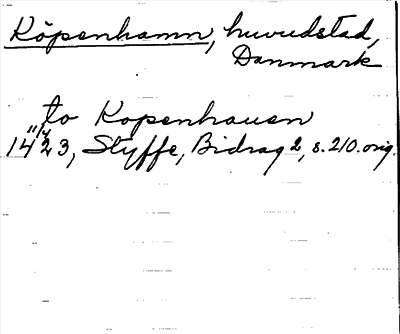 Köpenhamn, huvudstad,
Danmark
to Kopenhauen
11/4
1423, Styffe, Bidrag 2, s. 210. orig.